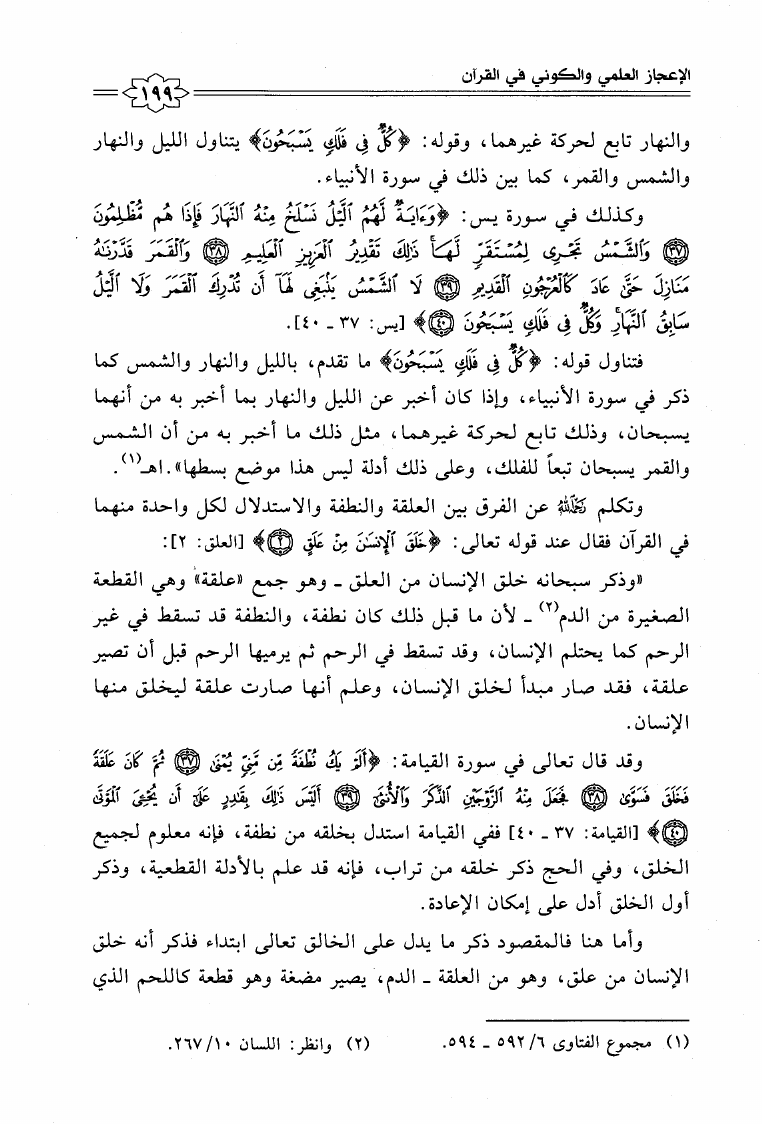 الإعجاز العلمي والكوني في القرآن
١٩٩
والنهار تابع لحركة غيرهما، وقوله: ﴿كُلٌّ فِي فَلَكٍ يَسْبَحُونَ﴾ يتناول الليل والنهار
والشمس والقمر، كما بين ذلك في سورة الأنبياء.
وكذلك في سورة يس: ﴿وَءَايَةٌ لَّهُمُ ٱلَّيْلُ نَسْلَخُ مِنْهُ ٱلنَّهَارَ فَإِذَا هُم مُّظْلِمُونَ
﴿٣٧﴾ وَٱلشَّمْسُ تَجْرِى لِمُسْتَقَرٍّ لَّهَا ذَٰلِكَ تَقْدِيرُ ٱلْعَزِيزِ ٱلْعَلِيمِ ﴿٣٨﴾ وَٱلْقَمَرَ قَدَّرْنَٰهُ
مَنَازِلَ حَتَّىٰ عَادَ كَٱلْعُرْجُونِ ٱلْقَدِيمِ ﴿٣٩﴾ لَا ٱلشَّمْسُ يَنۢبَغِى لَهَآ أَن تُدْرِكَ ٱلْقَمَرَ وَلَا ٱلَّيْلُ
سَابِقُ ٱلنَّهَارِ وَكُلٌّ فِى فَلَكٍ يَسْبَحُونَ ﴿٤٠﴾﴾ [يس: ٣٧ ـ ٤٠].
فتناول قوله: ﴿كُلٌّ فِي فَلَكٍ يَسْبَحُونَ﴾ ما تقدم، بالليل والنهار والشمس كما
ذكر في سورة الأنبياء، وإذا كان أخبر عن الليل والنهار بما أخبر به من أنهما
يسبحان، وذلك تابع لحركة غيرهما، مثل ذلك ما أخبر به من أن الشمس
والقمر يسبحان تبعاً للفلك، وعلى ذلك أدلة ليس هذا موضع بسطها».اهـ(١).
وتكلم رحمه الله عن الفرق بين العلقة والنطفة والاستدلال لكل واحدة منهما
في القرآن فقال عند قوله تعالى: ﴿خَلَقَ ٱلْإِنسَٰنَ مِنْ عَلَقٍ ﴿٢﴾﴾ [العلق: ٢]:
«وذكر سبحانه خلق الإنسان من العلق ـ وهو جمع «علقة» وهي القطعة
الصغيرة من الدم(٢) ـ لأن ما قبل ذلك كان نطفة، والنطفة قد تسقط في غير
الرحم كما يحتلم الإنسان، وقد تسقط في الرحم ثم يرميها الرحم قبل أن تصير
علقة، فقد صار مبدأ لخلق الإنسان، وعلم أنها صارت علقة ليخلق منها
الإنسان.
وقد قال تعالى في سورة القيامة: ﴿أَلَمْ يَكُ نُطْفَةً مِّن مَّنِىٍّ يُمْنَىٰ ﴿٣٧﴾ ثُمَّ كَانَ عَلَقَةً
فَخَلَقَ فَسَوَّىٰ ﴿٣٨﴾ فَجَعَلَ مِنْهُ ٱلزَّوْجَيْنِ ٱلذَّكَرَ وَٱلْأُنثَىٰٓ ﴿٣٩﴾ أَلَيْسَ ذَٰلِكَ بِقَٰدِرٍ عَلَىٰٓ أَن يُحْۦِىَ ٱلْمَوْتَىٰ
﴿٤٠﴾﴾ [القيامة: ٣٧ ـ ٤٠] ففي القيامة استدل بخلقه من نطفة، فإنه معلوم لجميع
الخلق، وفي الحج ذكر خلقه من تراب، فإنه قد علم بالأدلة القطعية، وذكر
أول الخلق أدل على إمكان الإعادة.
وأما هنا فالمقصود ذكر ما يدل على الخالق تعالى ابتداء فذكر أنه خلق
الإنسان من علق، وهو من العلقة ـ الدم، يصير مضغة وهو قطعة كاللحم الذي
(١) مجموع الفتاوى ٥٩٢/٦ ـ ٥٩٤. (٢) وانظر: اللسان ٢٦٧/١٠.